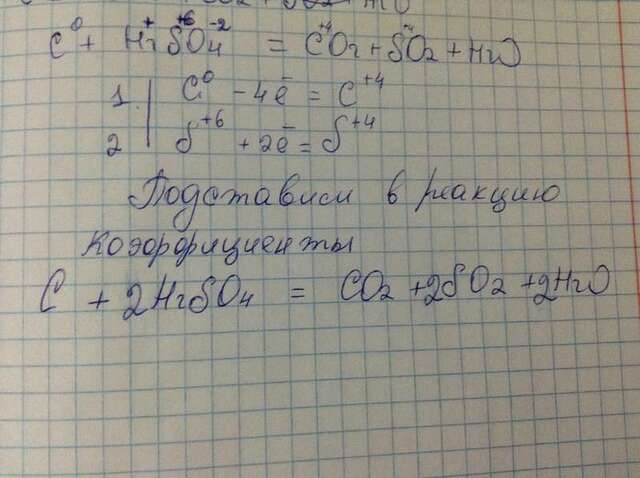 C⁰ + H₂⁺S⁺⁶O₄⁻² = C⁺⁴O₂ + S⁺⁴O₂ + H₂O
1 | C⁰ - 4ē = C⁺⁴
2 | S⁺⁶ + 2ē = S⁺⁴
Подставим в реакцию
коэффициенты
C + 2H₂SO₄ = CO₂ + 2SO₂ + 2H₂O